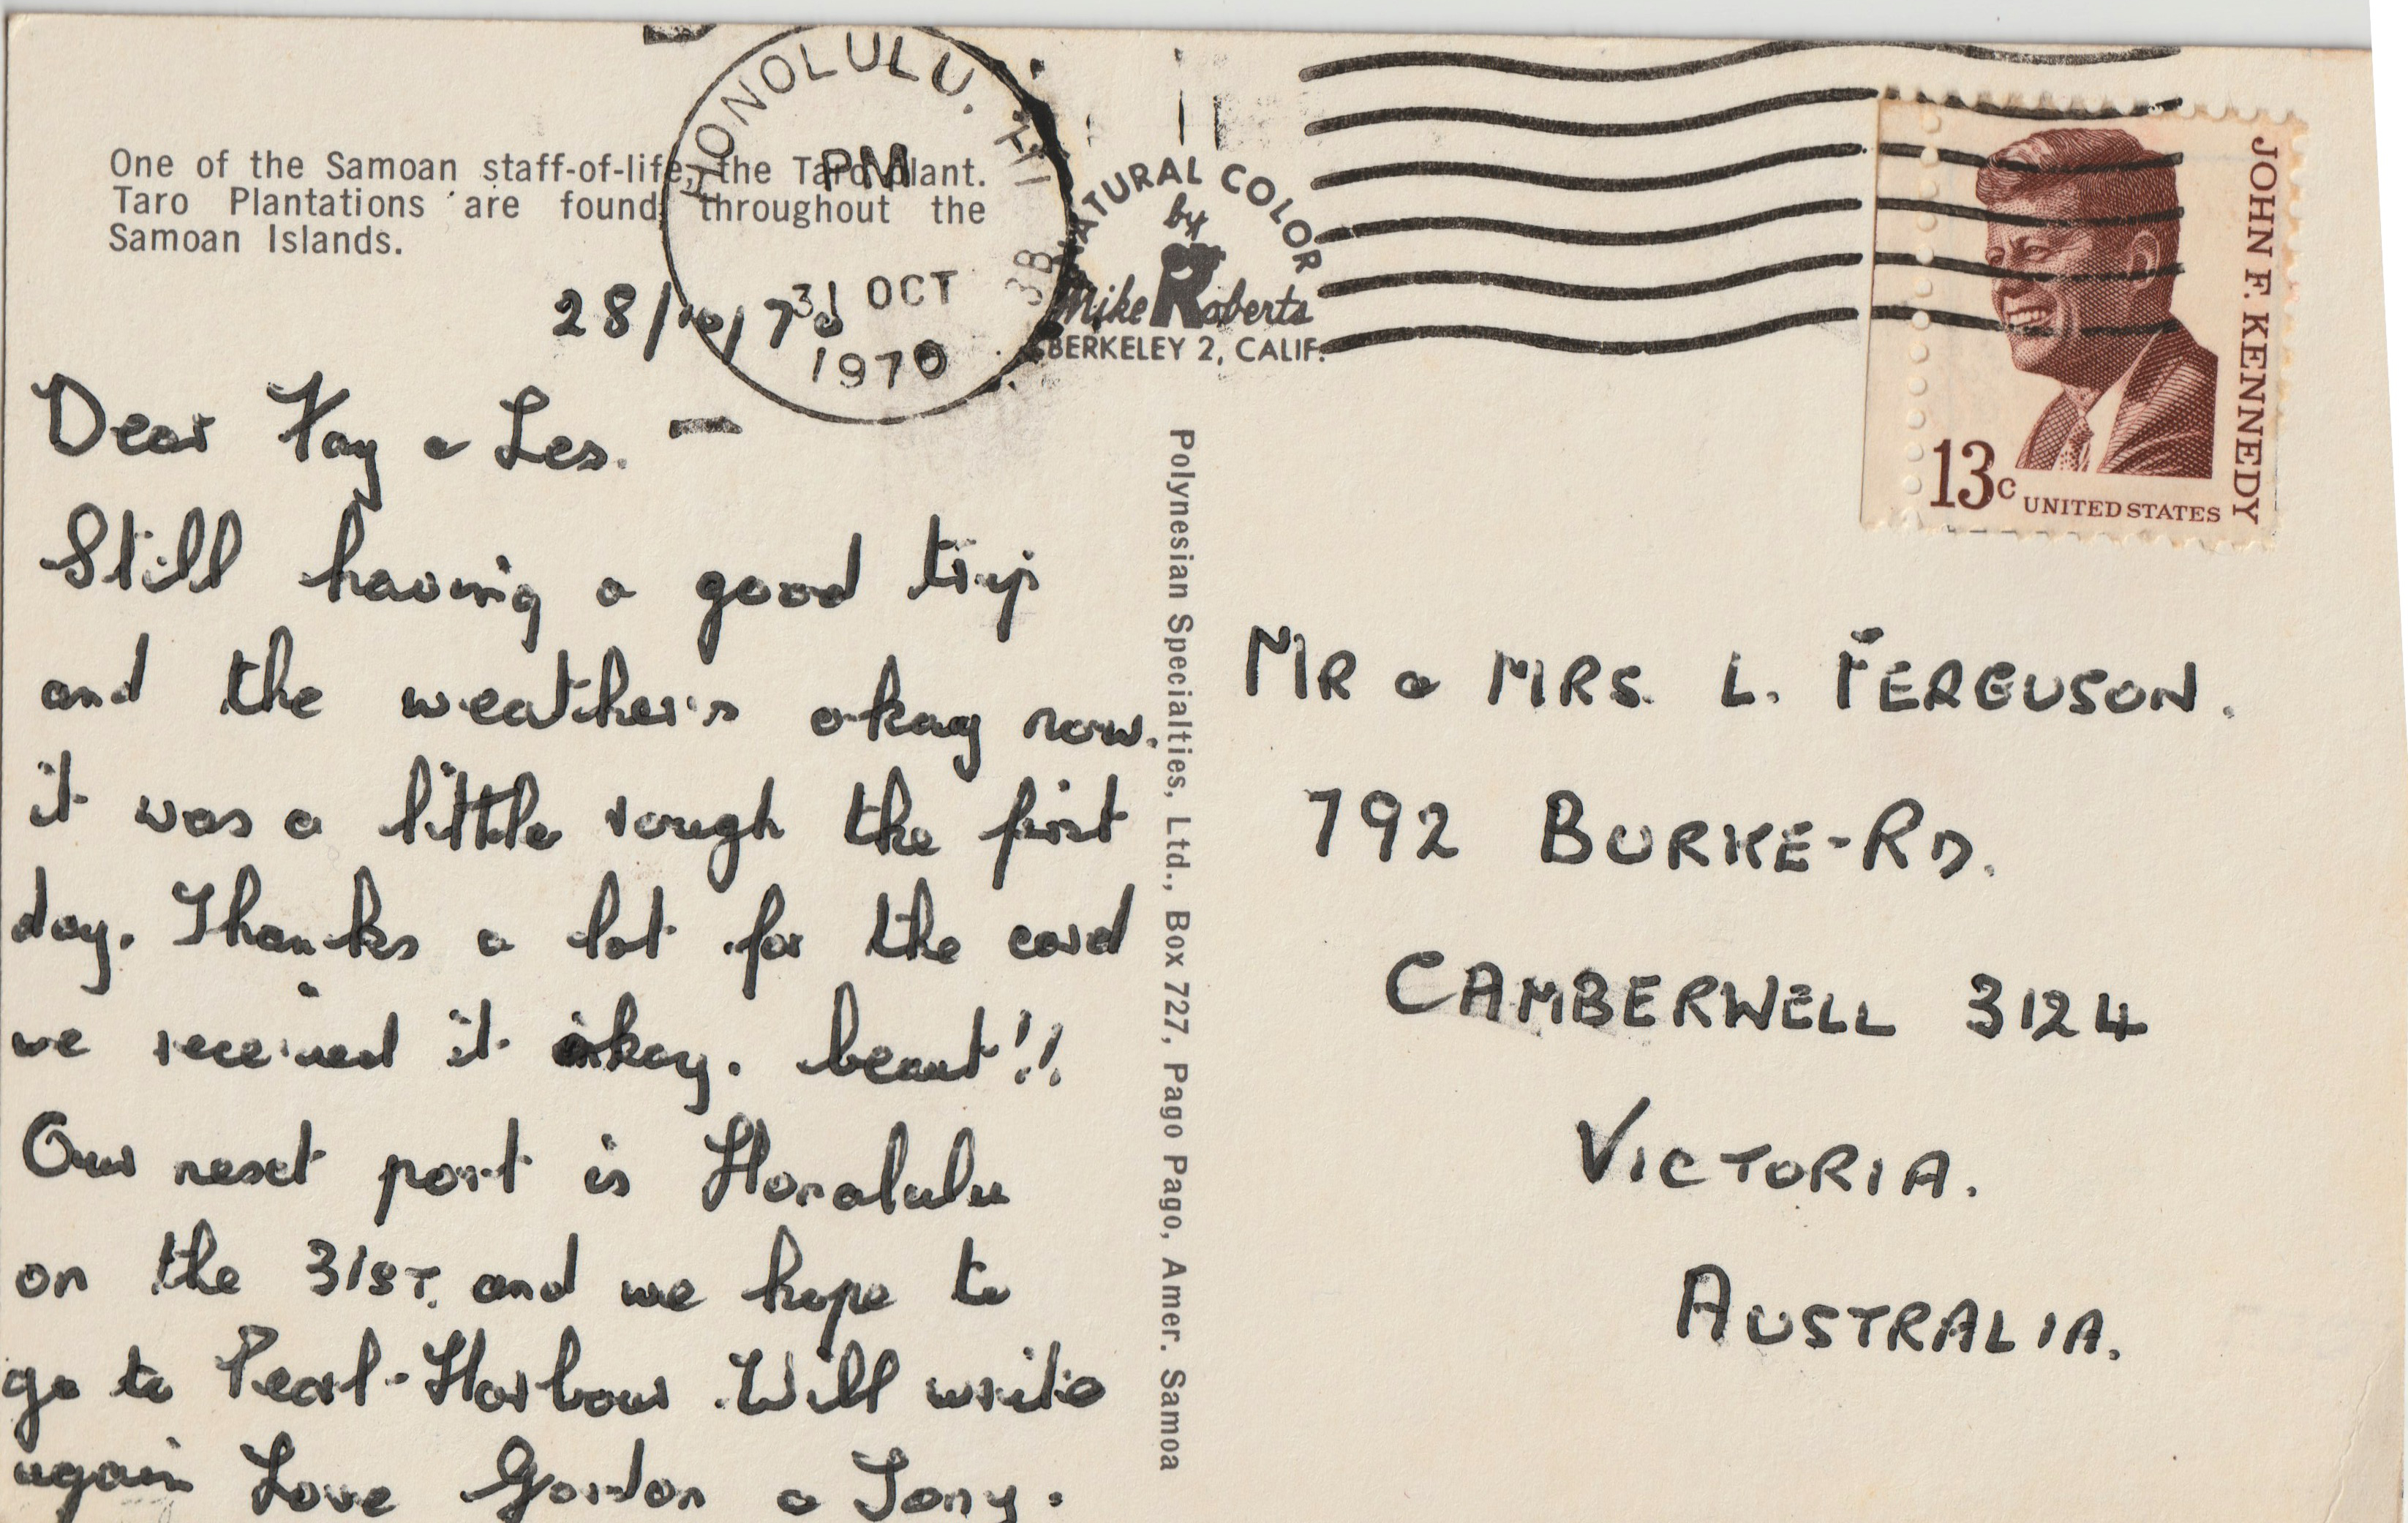 One of the Samoan staff-of-life, the Taro Plant.
Taro Plantations are found throughout the
Samoan Islands.
HONOLULU, HI
PM
31 OCT
1970
NATURAL COLOR
by
Mike Roberts
BERKELEY 2, CALIF.
JOHN F. KENNEDY
13c UNITED STATES
28/10/70
Dear Fay & Les. —
Still having a good trip
and the weather's okay now.
it was a little rough the first
day. Thanks a lot for the card
we received it okay. beaut!!
Our next port is Honolulu
on the 31ST. and we hope to
go to Pearl-Harbour. Will write
again Love Gordon & Tony.
Polynesian Specialties, Ltd., Box 727, Pago Pago, Amer. Samoa
MR & MRS. L. FERGUSON.
792 BURKE-RD.
CAMBERWELL 3124
VICTORIA.
AUSTRALIA.